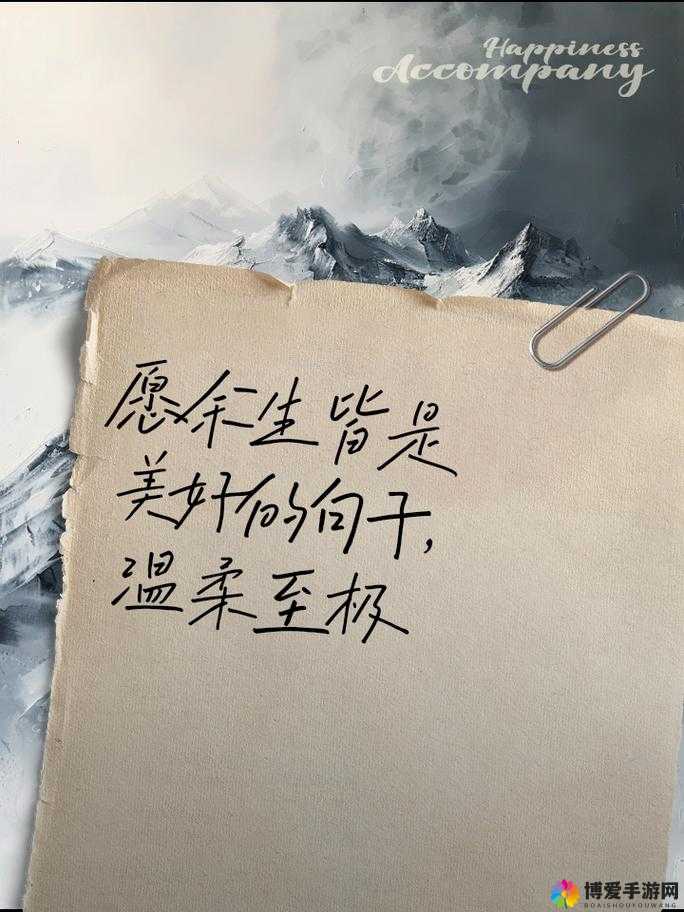 Happiness
Accompany
愿余生皆是
美好的句子,
温柔至极
博爱手游网
BOAISHOUYOUWANG